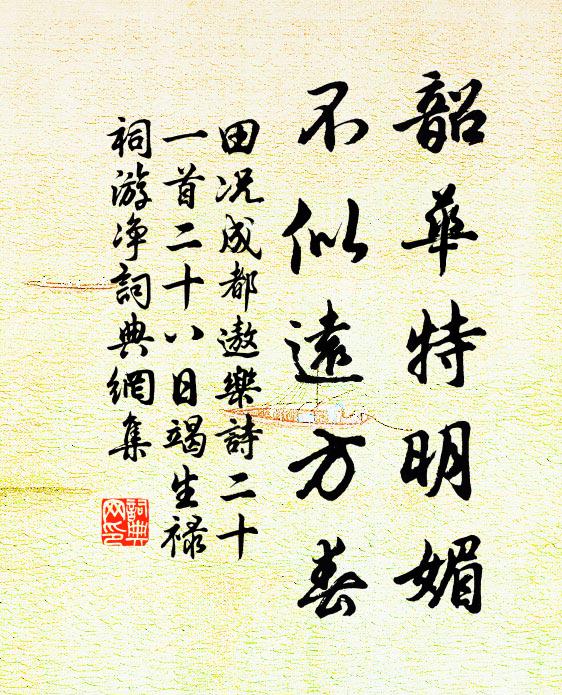 韶華特明媚
不似遠方春
田况成都遨樂詩二十
一首二十八日竭生禄
祠游净詞典網集
詞典
网印